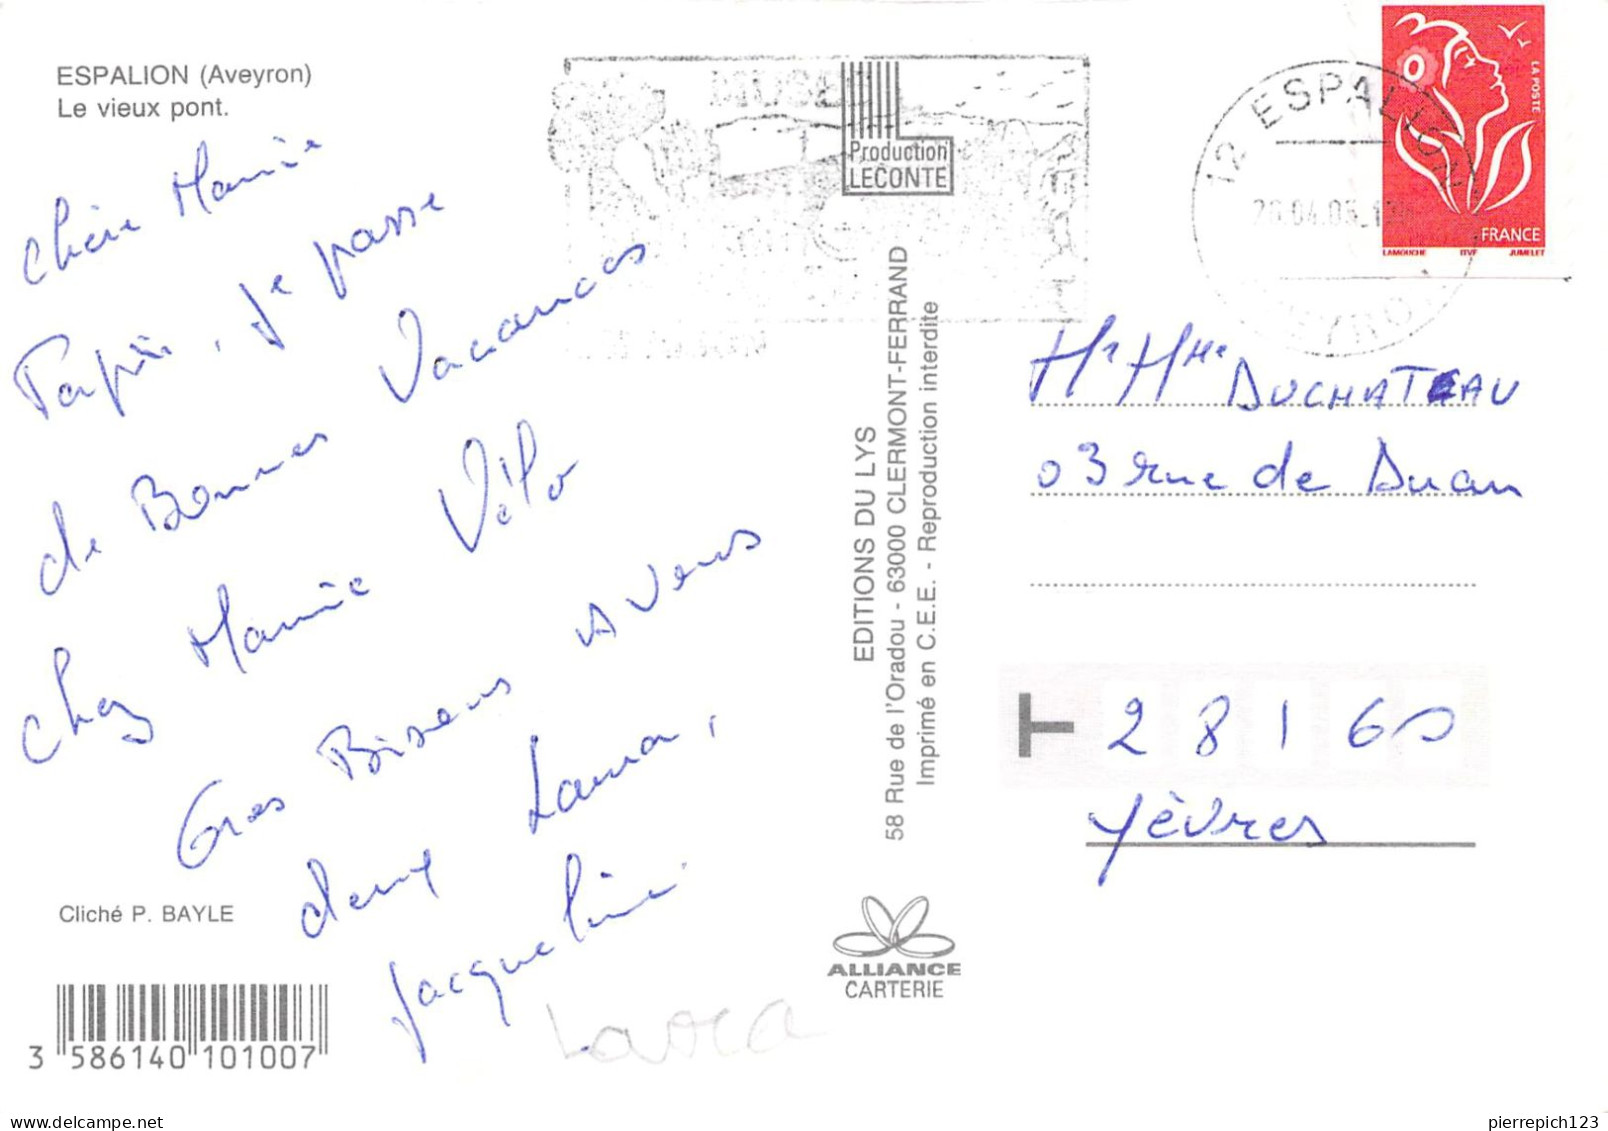 ESPALION (Aveyron)
Le vieux pont.
Chère Mamie
Papi, je passe
de Bonnes Vacances
chez Mamie Vélo
Gros Bisous A vous
deux Laura,
Jacqueline
Laura
Cliché P. BAYLE
3 586140 101007
MUSEE
Production
LECONTE
EDITIONS DU LYS
58 Rue de l'Oradou - 63000 CLERMONT-FERRAND
Imprimé en C.E.E. - Reproduction interdite
ALLIANCE
CARTERIE
12 ESPALION
LA POSTE
FRANCE
LAMOUCHE ITVF JUMELET
Mr Mme DUCHATEAU
03 rue de Duan
28160
Yèvres
www.delcampe.net
pierrepich123